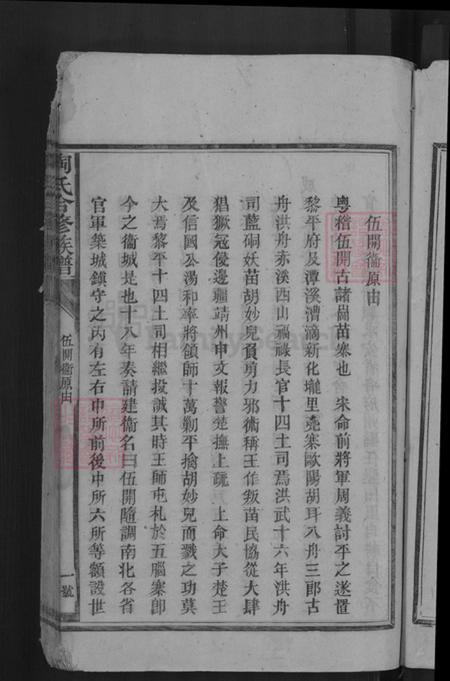 伍開衞原由
粵稽伍開古諸崗苗寨也　朱命前將軍周義討平之遂置
黎平府及潭溪漕滴新化壠里亮寨歐陽胡耳八舟三郎古
舟洪舟赤溪西山福祿長官十四土司焉洪武十六年洪舟
司藍硐妖苗胡妙兒負勇力邪術稱王作叛苗民協從大肆
猖獗冦侵邊疆靖州申文報警楚撫上疏　上命太子楚王
及信國公湯和率將領師十萬勦平擒胡妙兒而戮之功莫
大焉黎平十四土司相繼投誠其時王師屯札於五腦寨卽
今之衞城是也十八年奏請建衞名曰伍開隨調南北各省
官軍築城鎮守之內有左右中所前後中所六所等額設世
陶氏合修族譜
伍開衞原由
一號